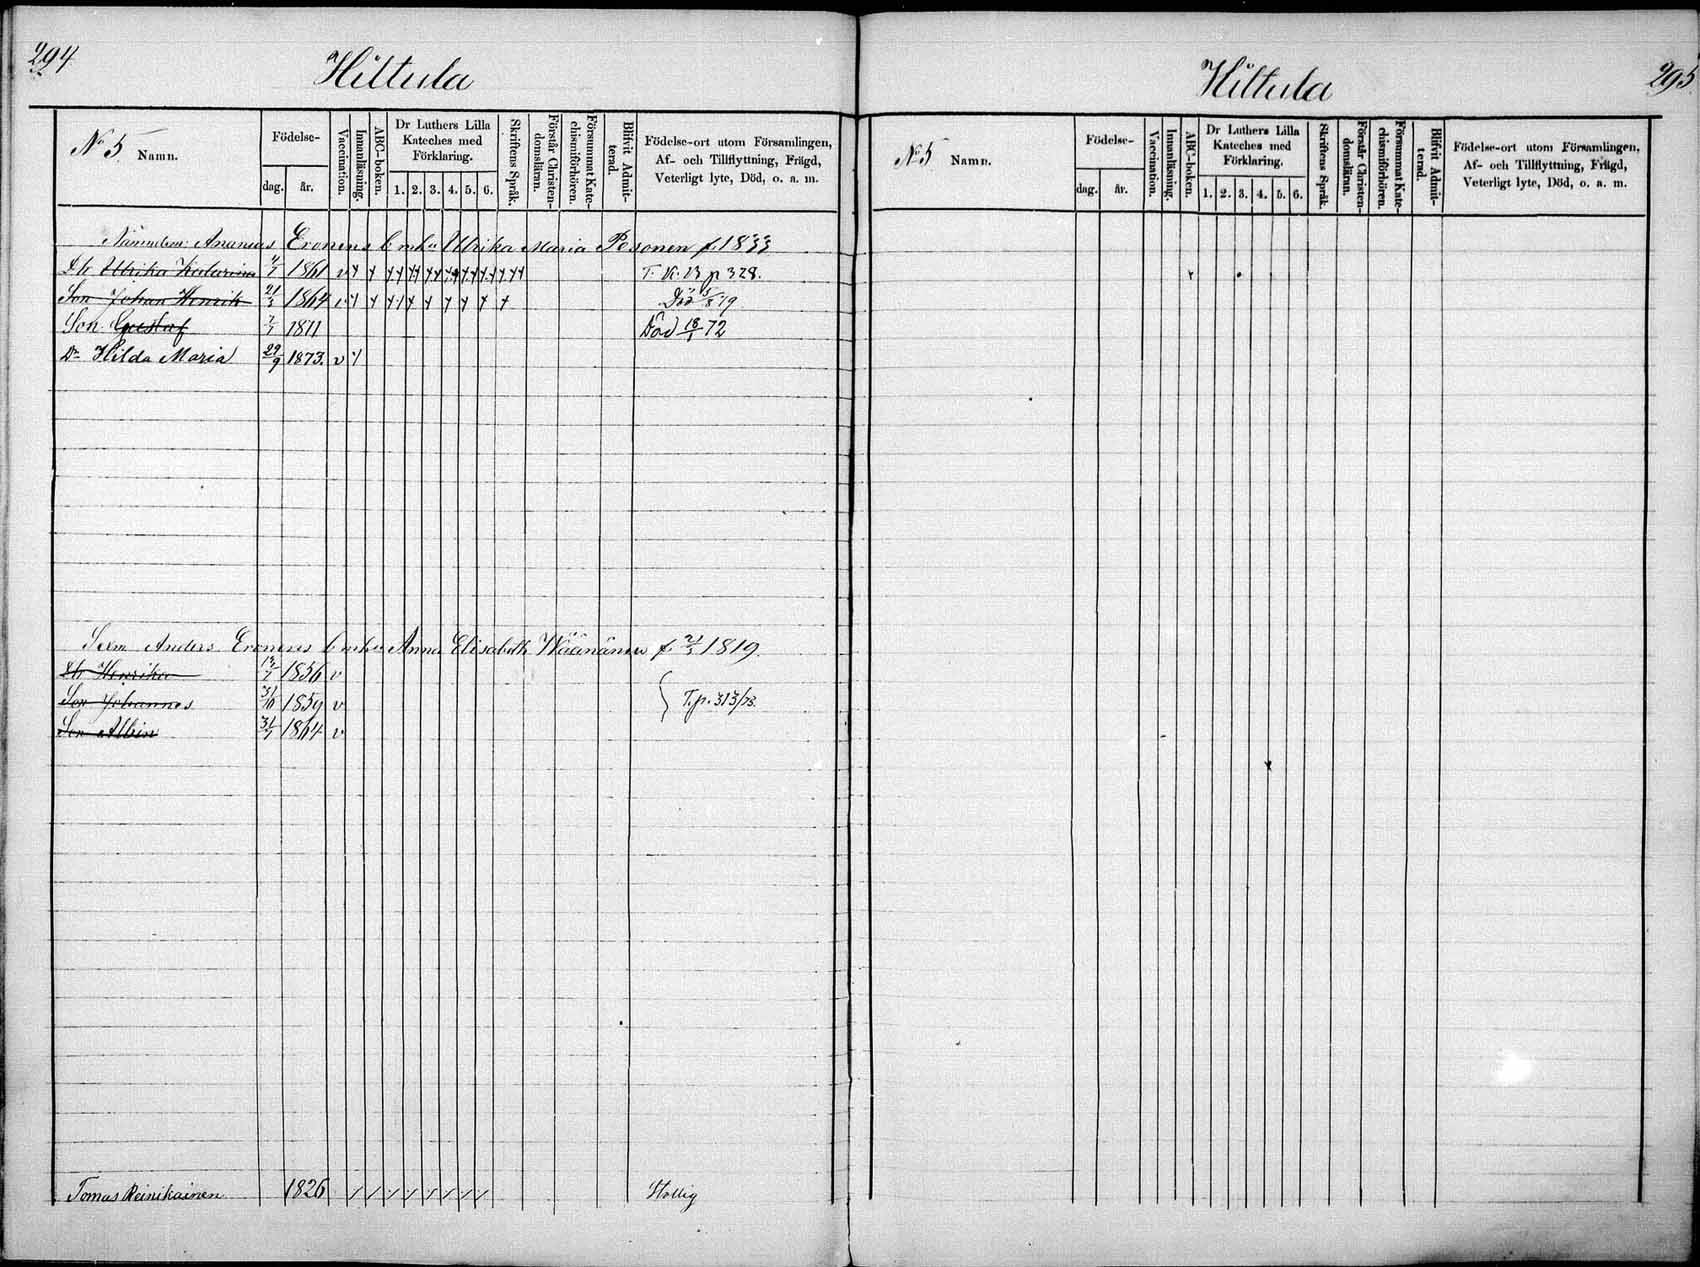 294
Hiltula
No 5 Namn.
Födelse-
dag. år.
Vaccination.
Innanläsning.
ABC-boken.
Dr Luthers Lilla Kateches med Förklaring.
1. 2. 3. 4. 5. 6.
Skriftens Språk.
Förstår Christendomsläran.
Försummat Katechismiförhören.
Blifvit Admitterad.
Födelse-ort utom Församlingen,
Af- och Tillflyttning, Frägd,
Veterligt lyte, Död, o. a. m.
Ananias Eronens Enka Ulrika Maria Pesonen f. 1833
Dr Ulrika Katarina 1861 v T. K. B p 328.
Son Johan Henrik 21/3 1864 v Död 79
Son Gustaf 1871 Död 18/1 72
Dr Hilda Maria 29/9 1873. v
Anders Eronens Enka Anna Elisabeth Wäänänen f. 1819.
Dr Henrika 1856 v
Son Johannes 31/10 1859 v T. p. 313/73.
Son Albin 31/7 1864 v
Tomas Reinikainen 1826
Hiltula
295
No 5 Namn.
Födelse-
dag. år.
Vaccination.
Innanläsning.
ABC-boken.
Dr Luthers Lilla Kateches med Förklaring.
1. 2. 3. 4. 5. 6.
Skriftens Språk.
Förstår Christendomsläran.
Försummat Katechismiförhören.
Blifvit Admitterad.
Födelse-ort utom Församlingen,
Af- och Tillflyttning, Frägd,
Veterligt lyte, Död, o. a. m.